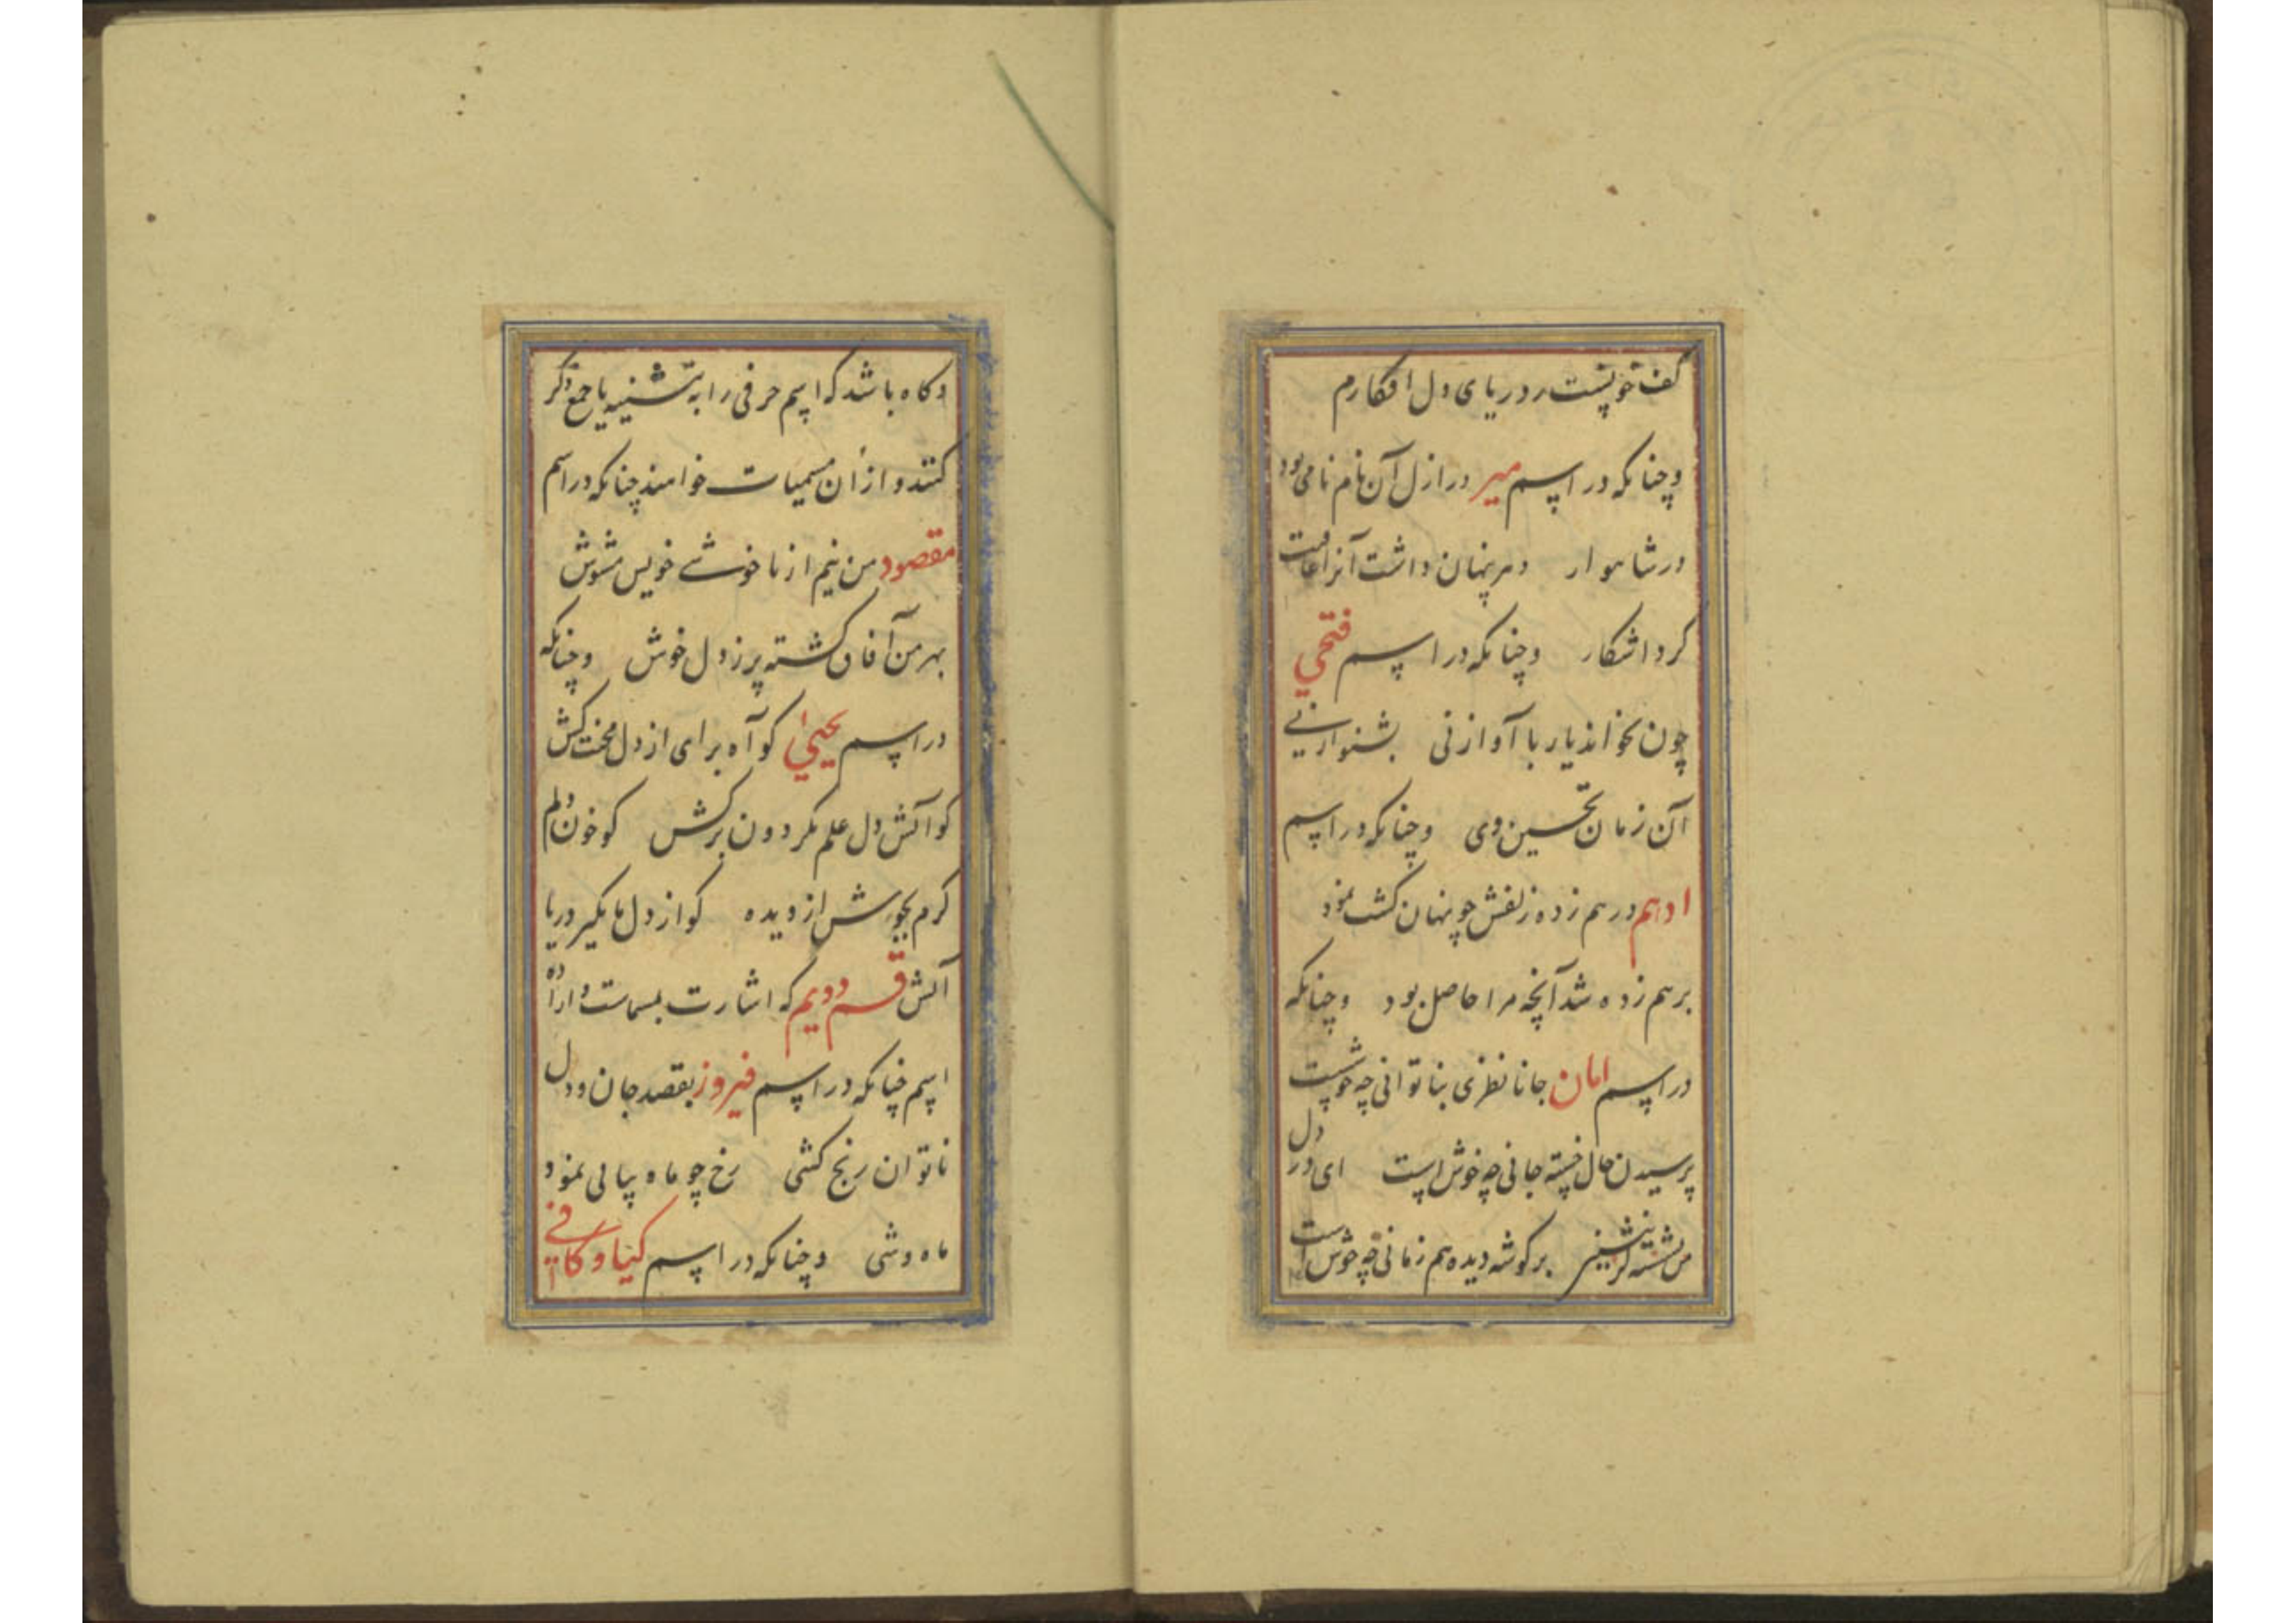 کف تو پشت ر دریای دل افکارم
وچنانکه در اسم میر در ازل آن نام نامی بود
در شاهوار دهر پنهان داشت آنرا عاقبت
کرد اشکار وچنانکه در اسم فتحی
چون بخواند یار با آواز نی بشنو از نی
آن زمان تحسین وی وچنانکه در اسم
ادهم درهم زده زلفش چو پنهان کشت نمود
برهم زده شد آنچه مرا حاصل بود وچنانکه
در اسم امان جانا نظری بناتوانی چه خوشست
پرسیدن حال خسته جانی چه خوش است ای در دل
من نشسته کر بنشینی بر کوشه دیده هم زمانی چه خوش است
وکاه باشد که اسم حرفی را به تثنیه یا جمع ذکر
کنند و از آن مسمیات خواهند چنانکه در اسم
مقصود من نیم از ناخوشے خویس مشوش
بهر من آفاق کشته پر ز دل خوش وچنانکه
در اسم یحیی کو آه برای از دل محنت کش
کو آتش دل علم بکردون برکش کو خون دلم
کرم بجوش از دیده کو از دل ما بکیر دریا
آتش قسم دویم که اشارت بمسماست و اراده
اسم چنانکه در اسم فیروز بقصد جان و دل
ناتوان رنج کشی رخ چو ماه بیابی نمود
ماه وشی وچنانکه در اسم کیا و کافی